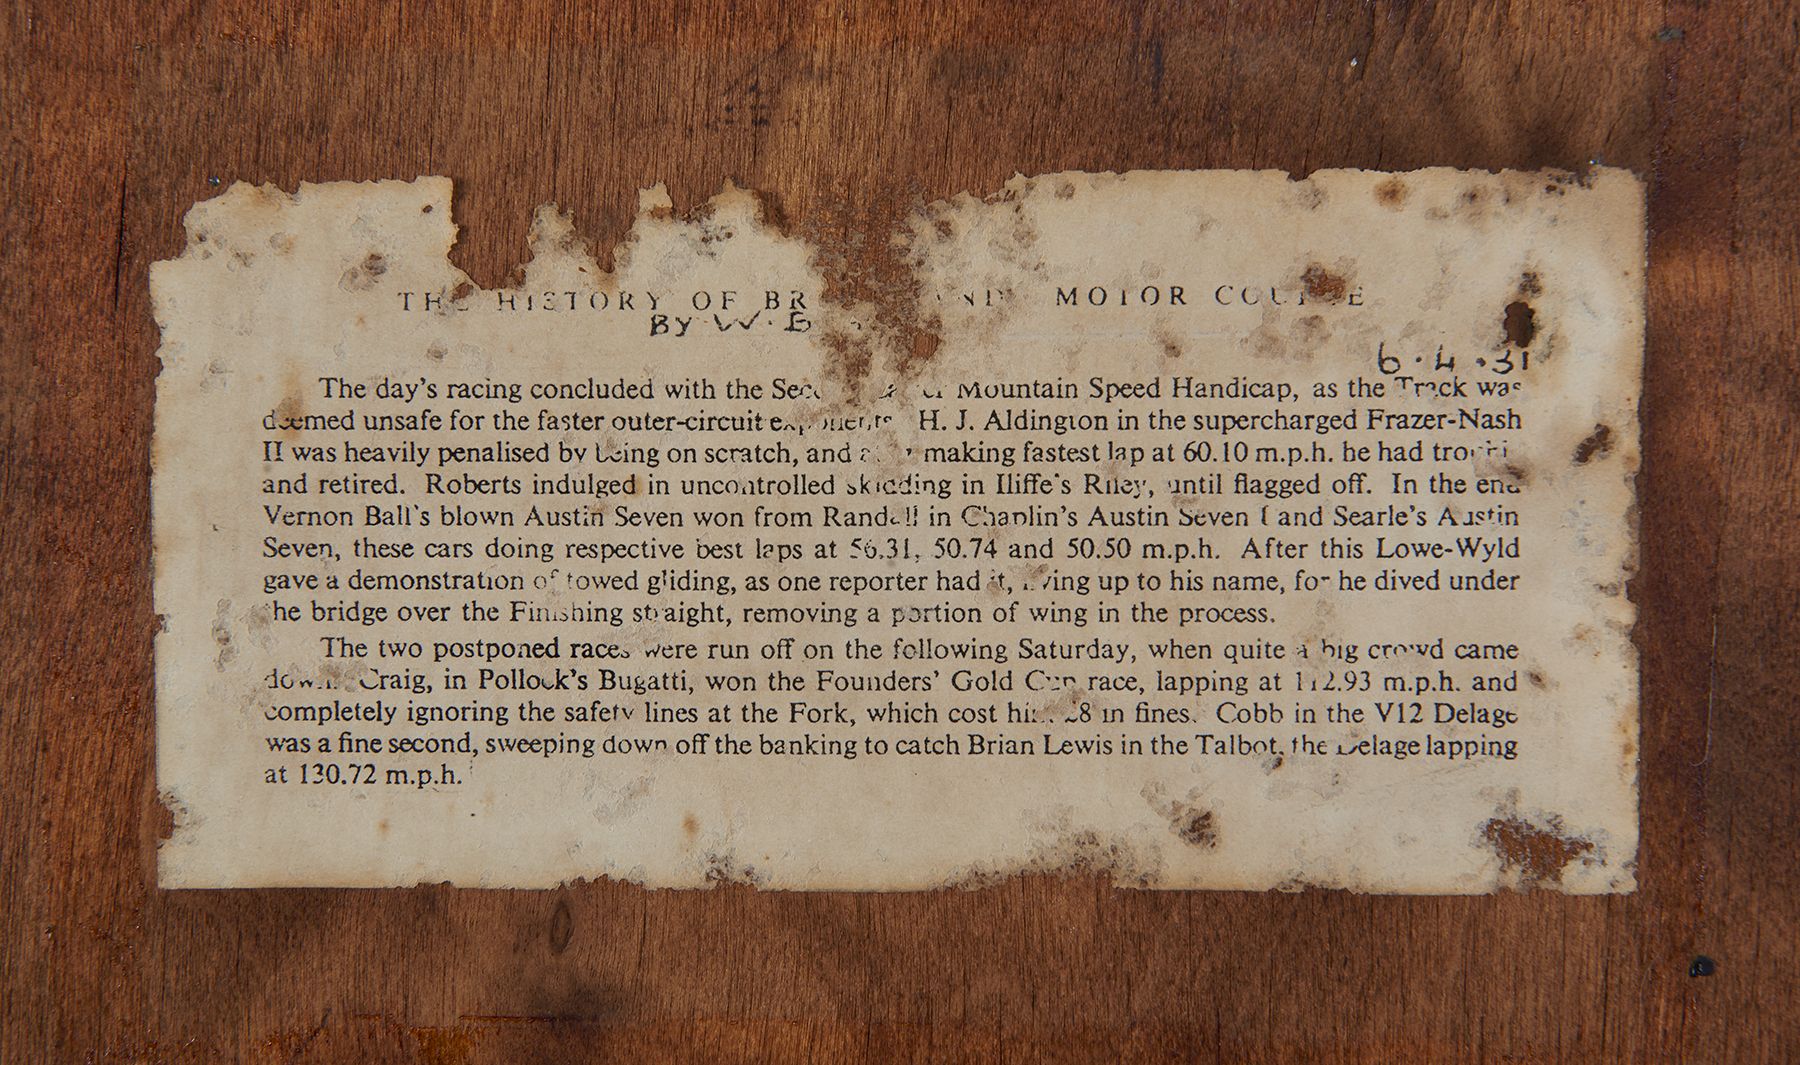 THE HISTORY OF MOTOR COURSE
BY W. B
6.4.31
The day's racing concluded with the Mountain Speed Handicap, as the Track was
deemed unsafe for the faster outer-circuit exponents. H. J. Aldington in the supercharged Frazer-Nash
II was heavily penalised by being on scratch, and making fastest lap at 60.10 m.p.h. he had
and retired. Roberts indulged in uncontrolled skidding in Iliffe's Riley, until flagged off. In the end
Vernon Ball's blown Austin Seven won from Randall in Chaplin's Austin Seven and Searle's Austin
Seven, these cars doing respective best laps at 56.31, 50.74 and 50.50 m.p.h. After this Lowe-Wyld
gave a demonstration of towed gliding, as one reporter had it, living up to his name, for he dived under
the bridge over the Finishing straight, removing a portion of wing in the process.
The two postponed races were run off on the following Saturday, when quite a big crowd came
down. Craig, in Pollock's Bugatti, won the Founders' Gold Cup race, lapping at 112.93 m.p.h. and
completely ignoring the safety lines at the Fork, which cost him in fines. Cobb in the V12 Delage
was a fine second, sweeping down off the banking to catch Brian Lewis in the Talbot, the Delage lapping
at 130.72 m.p.h.